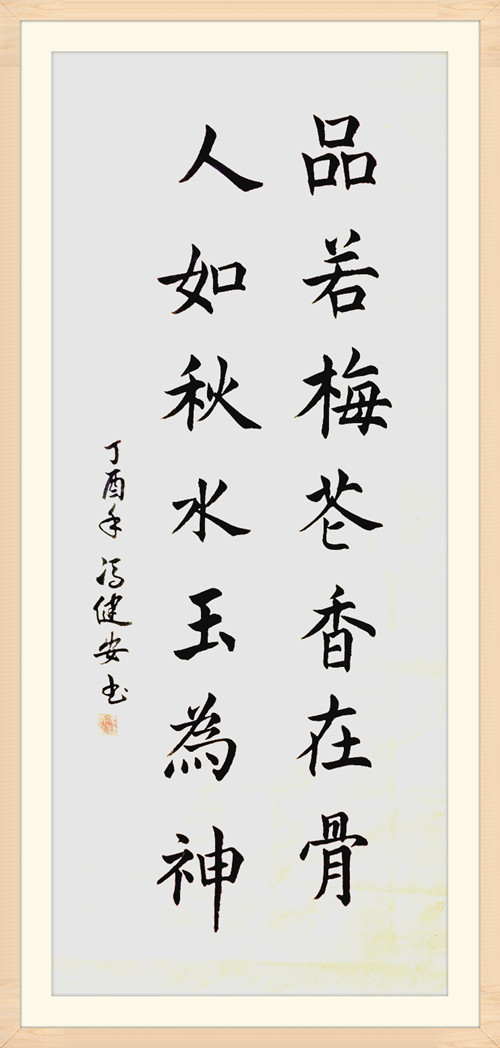 品若梅苍香在骨
人如秋水玉為神
丁酉年 冯健安书